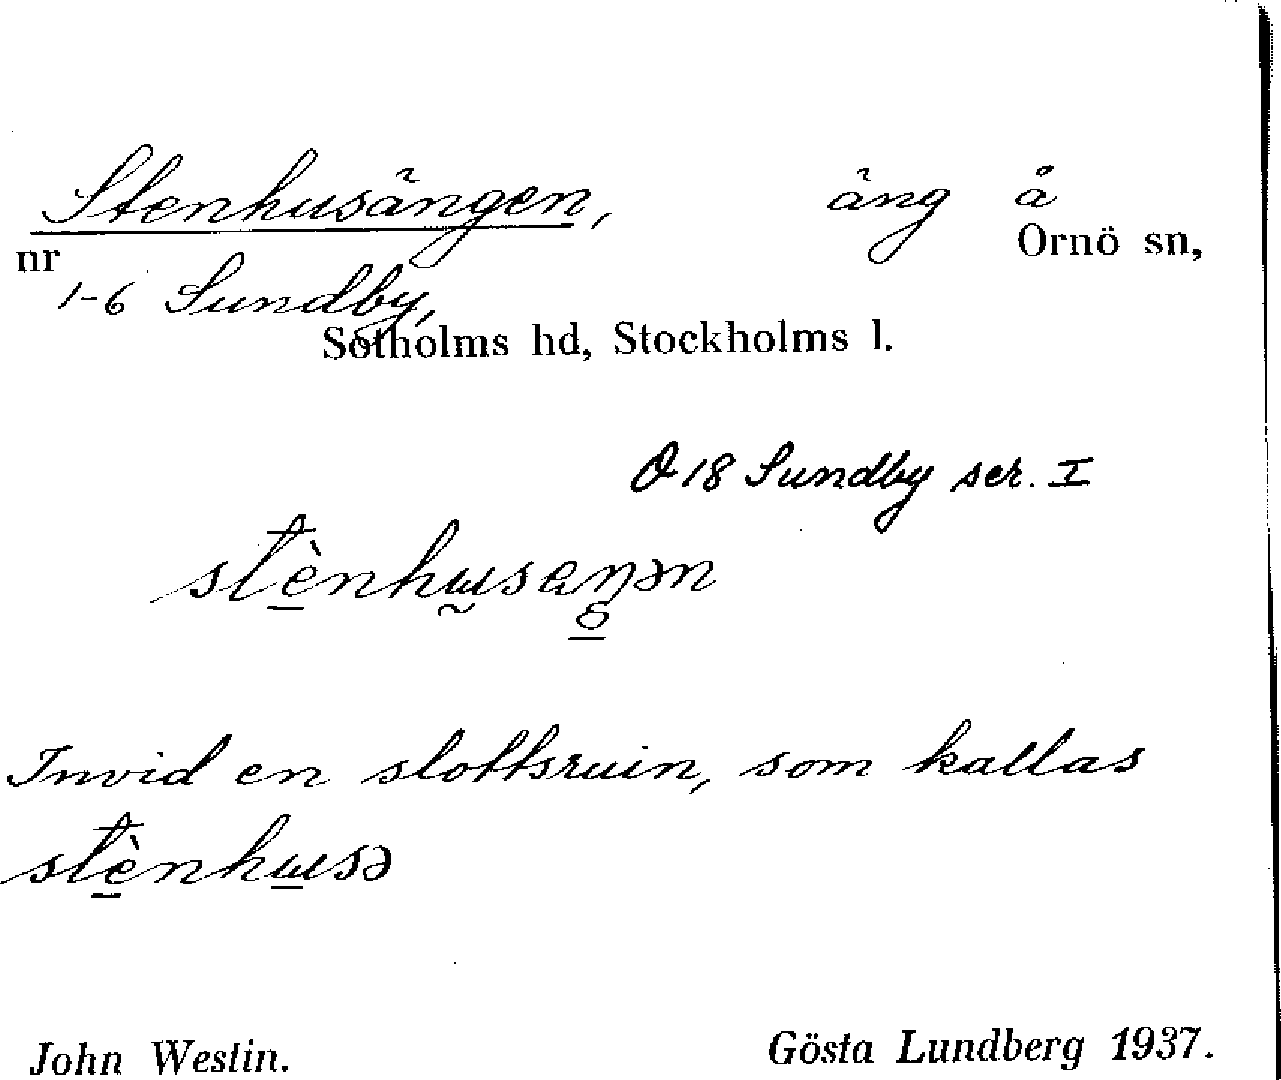 Stenhusängen, äng å
nr Ornö sn,
1-6 Sundby,
Sotholms hd, Stockholms l.
O 18 Sundby ser. I
stènhɯsaŋən
Invid en slottsruin, som kallas
stènhɯsə
John Westin. Gösta Lundberg 1937.